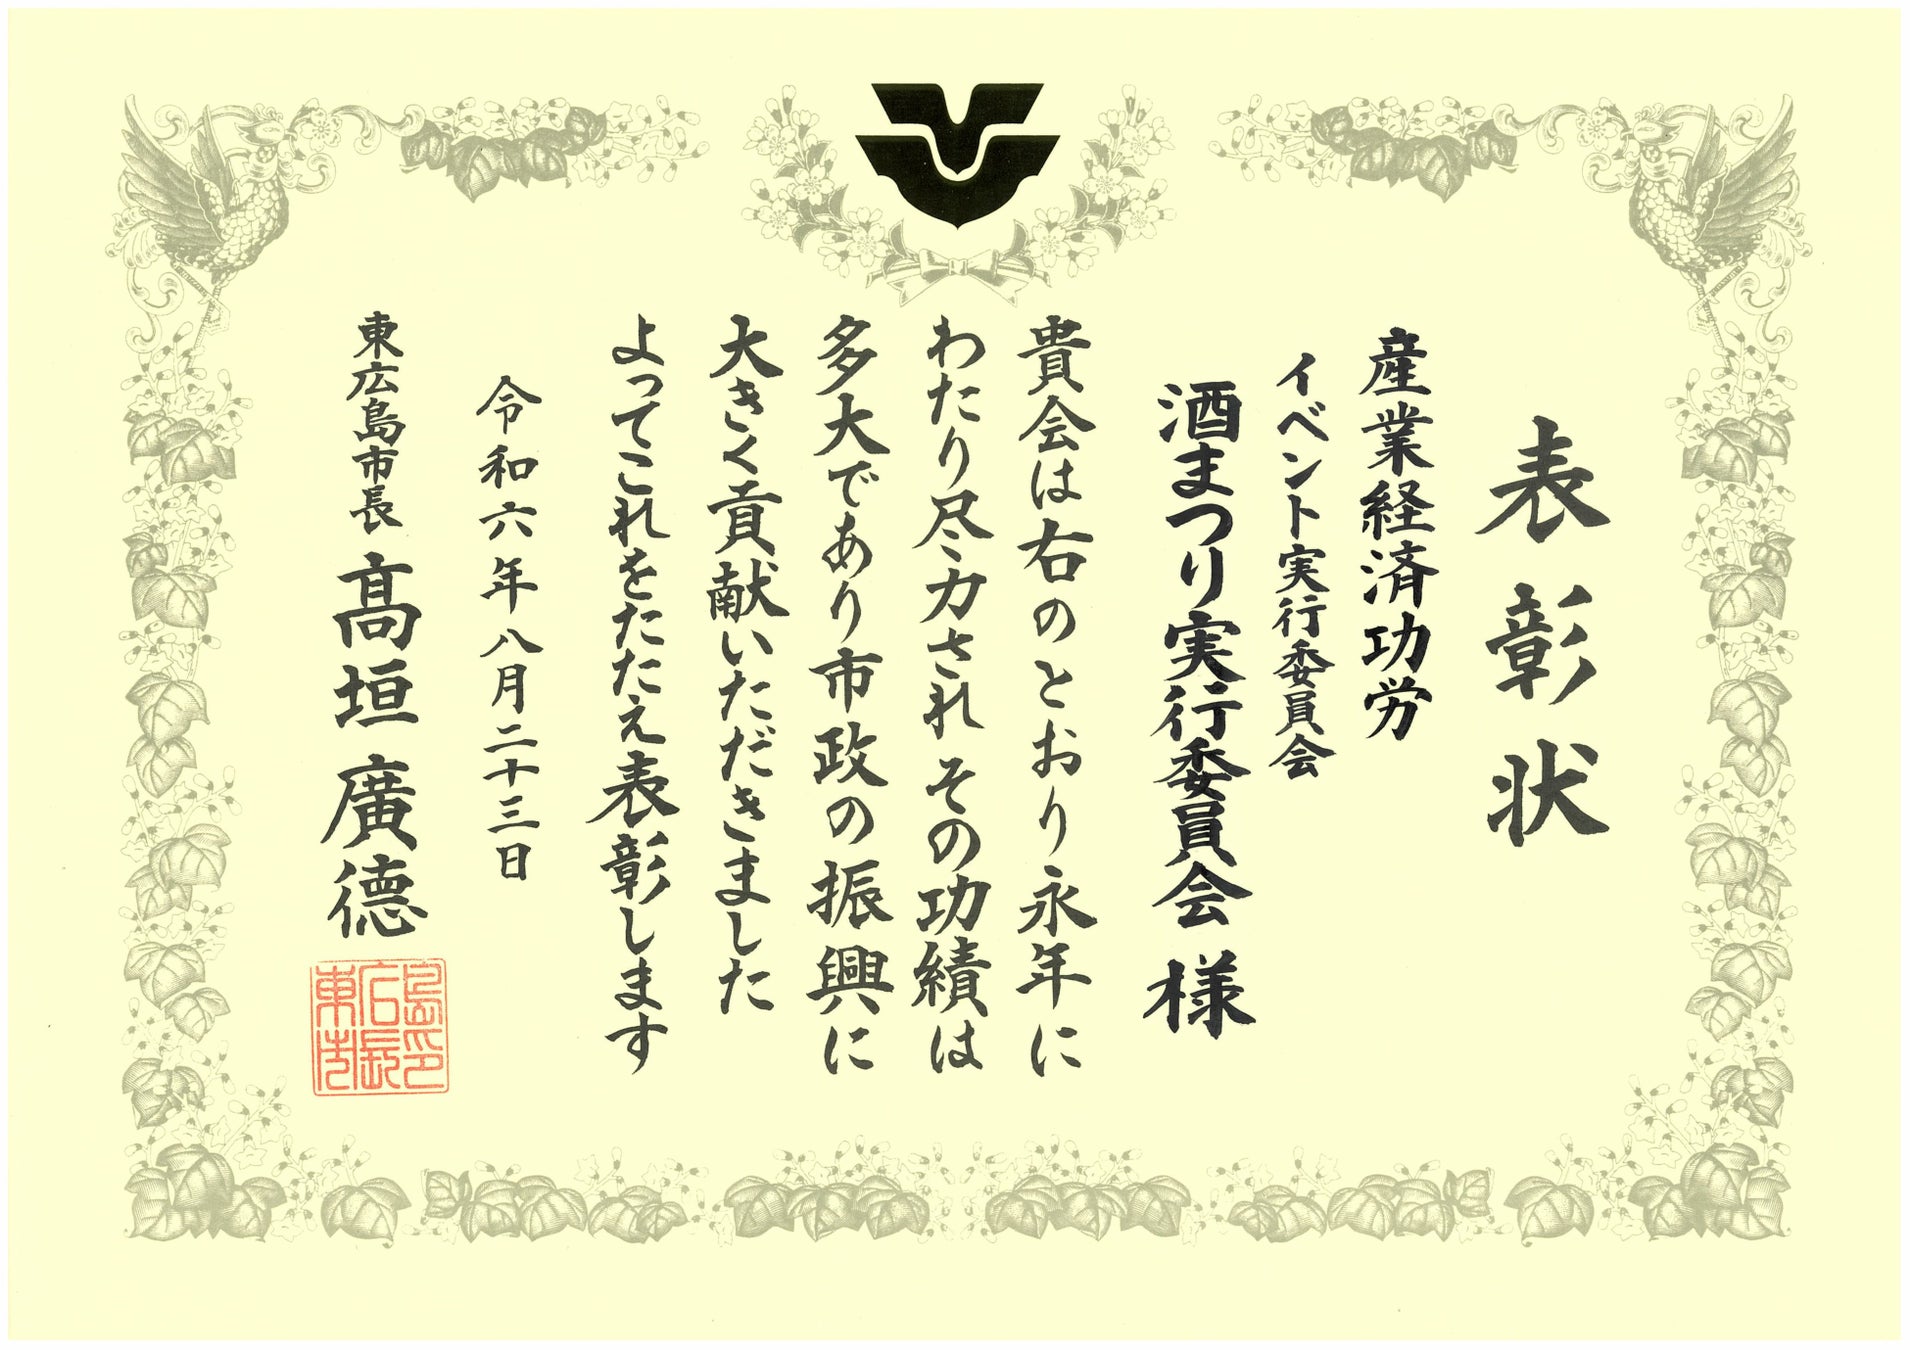 表彰状
産業経済功労
イベント実行委員会
酒まつり実行委員会 様
貴会は右のとおり永年に
わたり尽力され その功績は
多大であり市政の振興に
大きく貢献いただきました
よってこれをたたえ表彰します
令和六年八月二十三日
東広島市長 髙垣 廣徳
東広島市長印